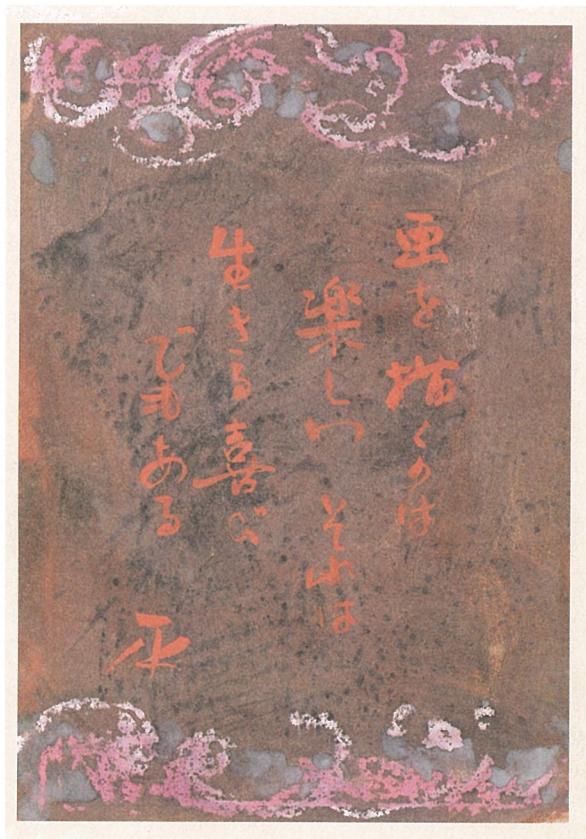 画を描くのは
楽しい それは
生きる喜び
でもある